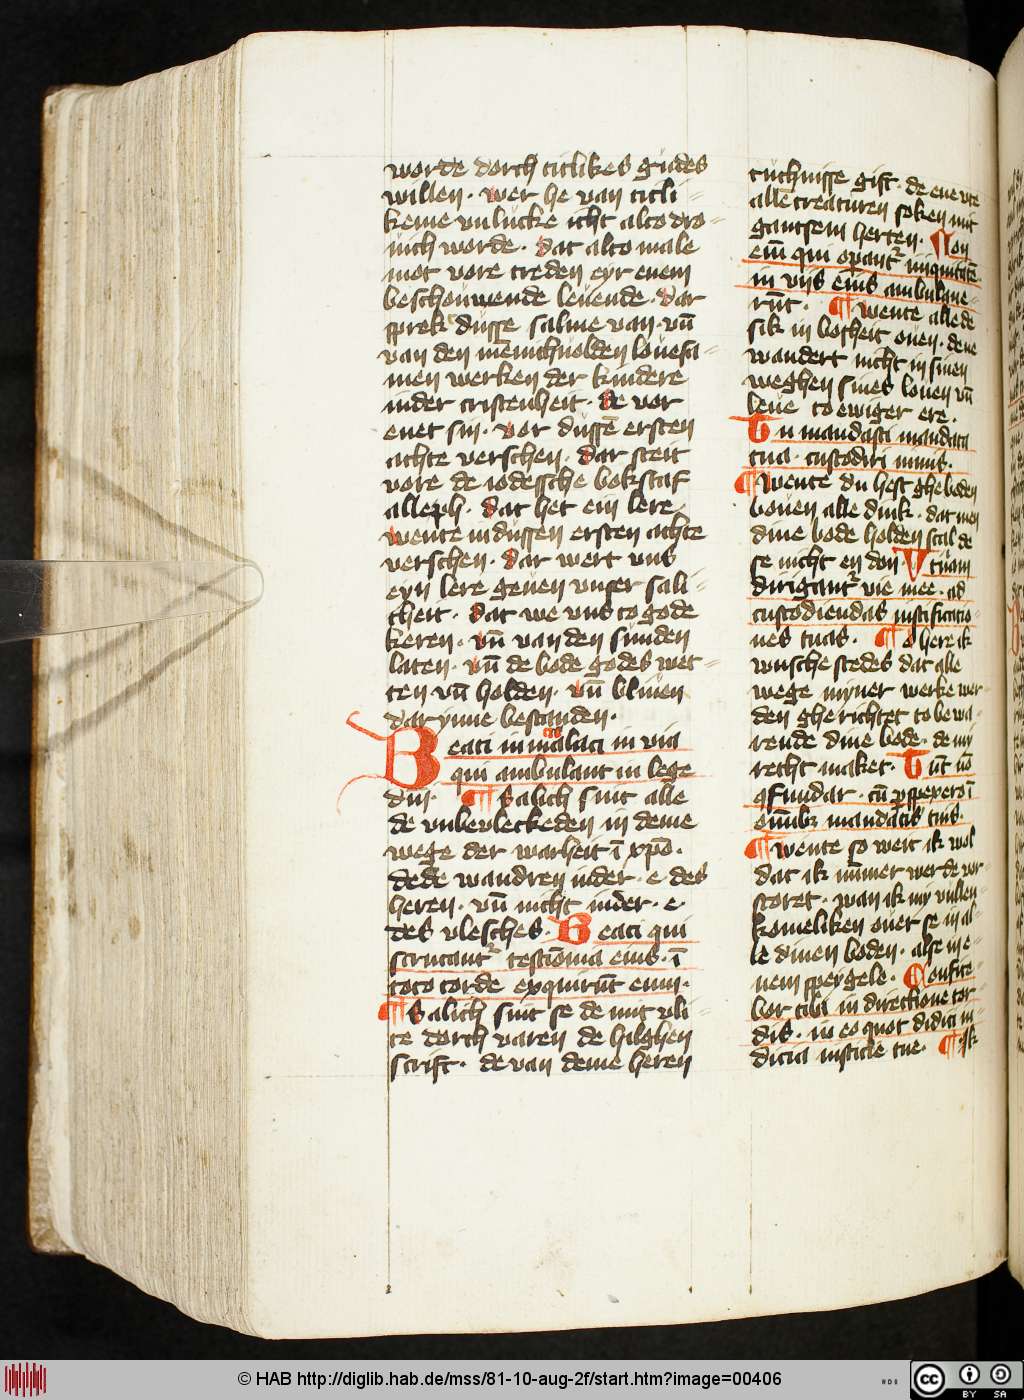 worde dorch titlikes gudes
willen. wer he van titli-
keme vnlucke icht alto dro-
nich worde. dat alto male
mot vore treden eyr enem
beschouwende leuende. dar
sprek dusse salme van. vn̄
van den mēnichuolden louesa-
men werken der kindere
inder cristenheit. de vor
enet sin. vor dussē ersten
achte verschen. dar steit
vore de iodessche bokstaf
alleph. dat het ein lere
wente in dussen ersten achte
verschen. dar wert vns
eyn lere geuen vnser sali-
cheit. dat we vns to gode
keren. vn̄ van den sunden
laten. vn̄ de bode godes wet-
ten vn̄ holden. vn̄ bliuen
dar ynne bestanden.
Beati in maculati in via
qui ambulant in lege
dn̄i. ¶ Salich sint alle
de vnbevleckeden in deme
wege der warheit ī xp̄o.
dede wandren inder. e. des
heren. vn̄ nicht inder. e.
des vlesches. Beati qui
scrutant᷑ testīonia eius. ī
toto corde exquirūt eum.
¶ Salich sint se de mit vli
te dorch varen de hilghen
scrift. de van deme heren
tuchnisse gift. de ene vte
allē creaturen soken mit
gantsem herten. Non
eī qui opant᷑ iniquitatē
in viis eius ambulaue-
rūt. ¶ Wente alle de
sik in bosheit ouen. dene
wandert nicht in sinen
weghen sines louen vn̄
leue to ewiger ere.
Tu mandasti mandata
tua. custodiri nimis.
¶ Wente du hest ghe boden
bouen alle dink. dat men
dine bode holden scal de
se nicht en don. Vtinam
dirigant᷑ vie mee. ad
custodiendas iustificatio-
nes tuas. ¶ O here ik
wusche stedes dat alle
wege myner werke wer-
den gherichtet to bewa-
rende dine bode. de my
recht maket. Tūt nō
ꝯfundar. cū ꝑspexero ī
omībꝫ mandatis tuis.
¶ Wente so weit ik wol
dat ik nūmer werde vor
storet. wan ik my vullen-
komeliken ouet se in al-
le dinen boden. alse in e-
nem speygele. Confite-
bor tibi in directione cor-
dis. in eo quot didici iu-
dicia iusticie tue. ¶ Ik
© HAB http://diglib.hab.de/mss/81-10-aug-2f/start.htm?image=00406
HDB
cc
BY SA